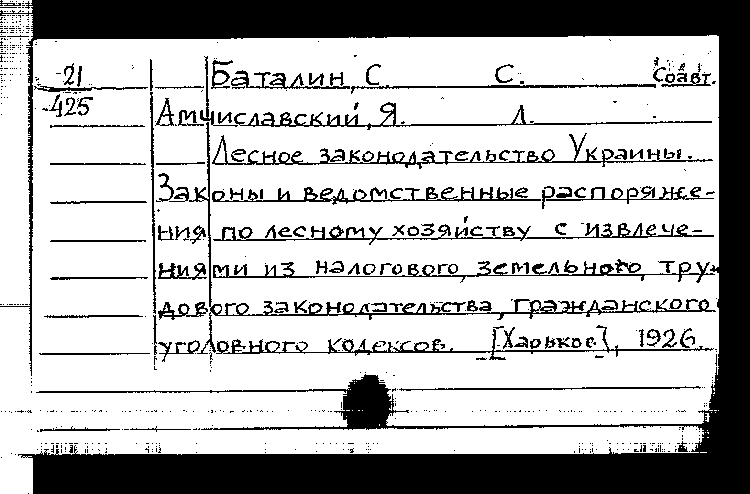 21 Баталин, С. С. Соавт.
425 Амчиславский, Я. Л.
Лесное законодательство Украины.
Законы и ведомственные распоряже-
ния по лесному хозяйству с извлече-
ниями из налогового, земельного, тру-
дового законодательства, гражданского
уголовного кодексов. [Харьков], 1926.